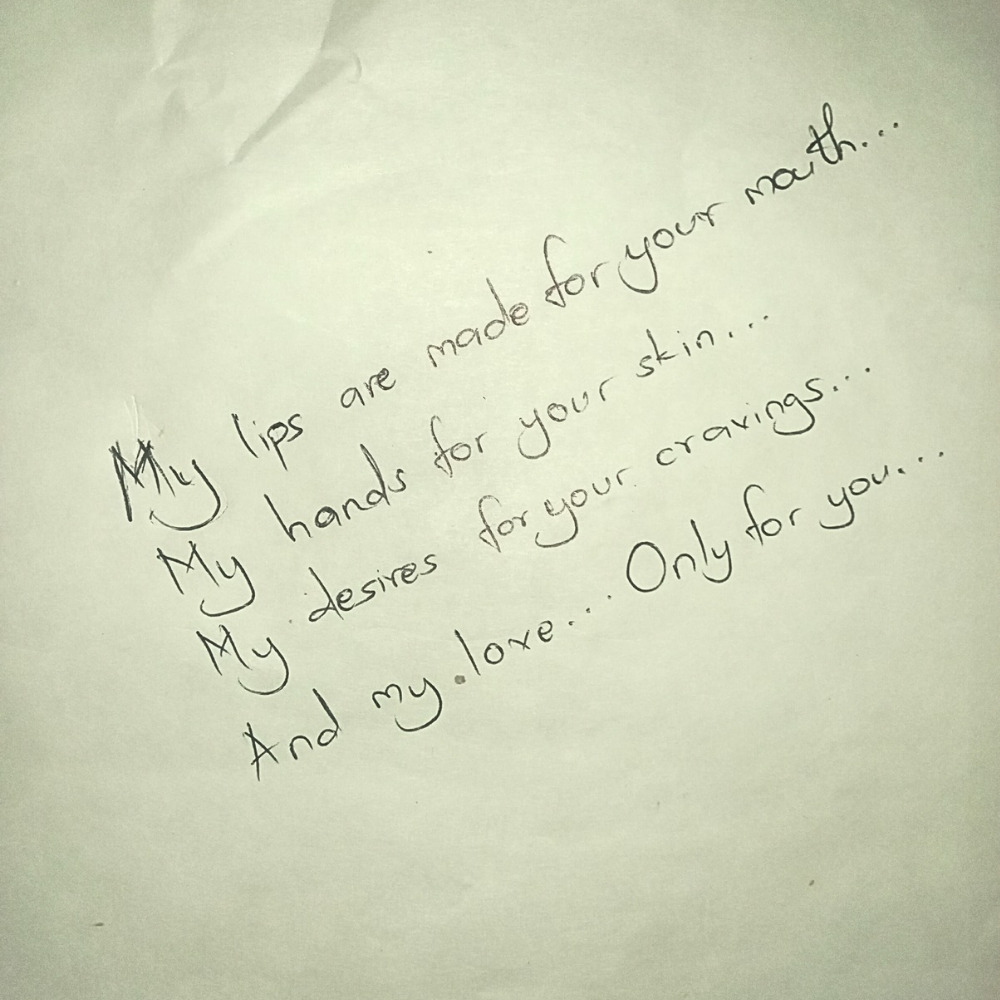 My lips are made for your mouth...
My hands for your skin...
My desires for your cravings...
And my love... Only for you...